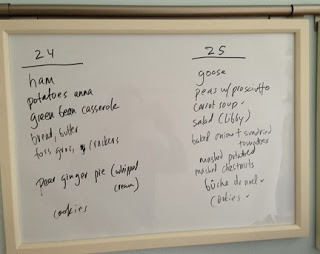 24
ham
potatoes anna
green bean casserole
bread, butter
fois gras, crackers
Pear ginger pie (whipped
cream)
cookies
25
goose
peas w/ prosciutto
carrot soup ✓
salad (Libby)
baked onions + sundried
tomatoes
mashed potatoes
mashed chestnuts
bûche de noel ✓
cookies ✓